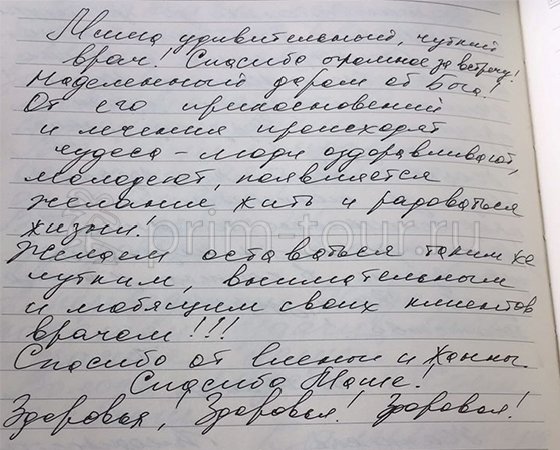 Миша удивительный, чуткий
врач! Спасибо огромное за встречу!
Наделенный даром от Бога.
От его прикосновений
и лечения происходят
чудеса – люди оздоравливают,
молодеют, появляется
желание жить и радоваться
жизни!
prim-tour.ru
Желаем оставаться таким же
чутким, внимательным
и любящим своих клиентов
врачом!!!
Спасибо от Елены и Жанны.
Спасибо Маше.
Здоровья! Здоровья! Здоровья!